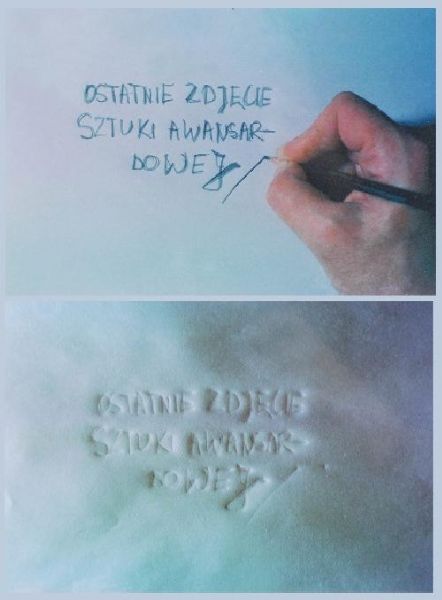 OSTATNIE ZDJĘCIE
SZTUKI AWANGAR-
DOWEJ
OSTATNIE ZDJĘCIE
SZTUKI AWANGAR-
DOWEJ